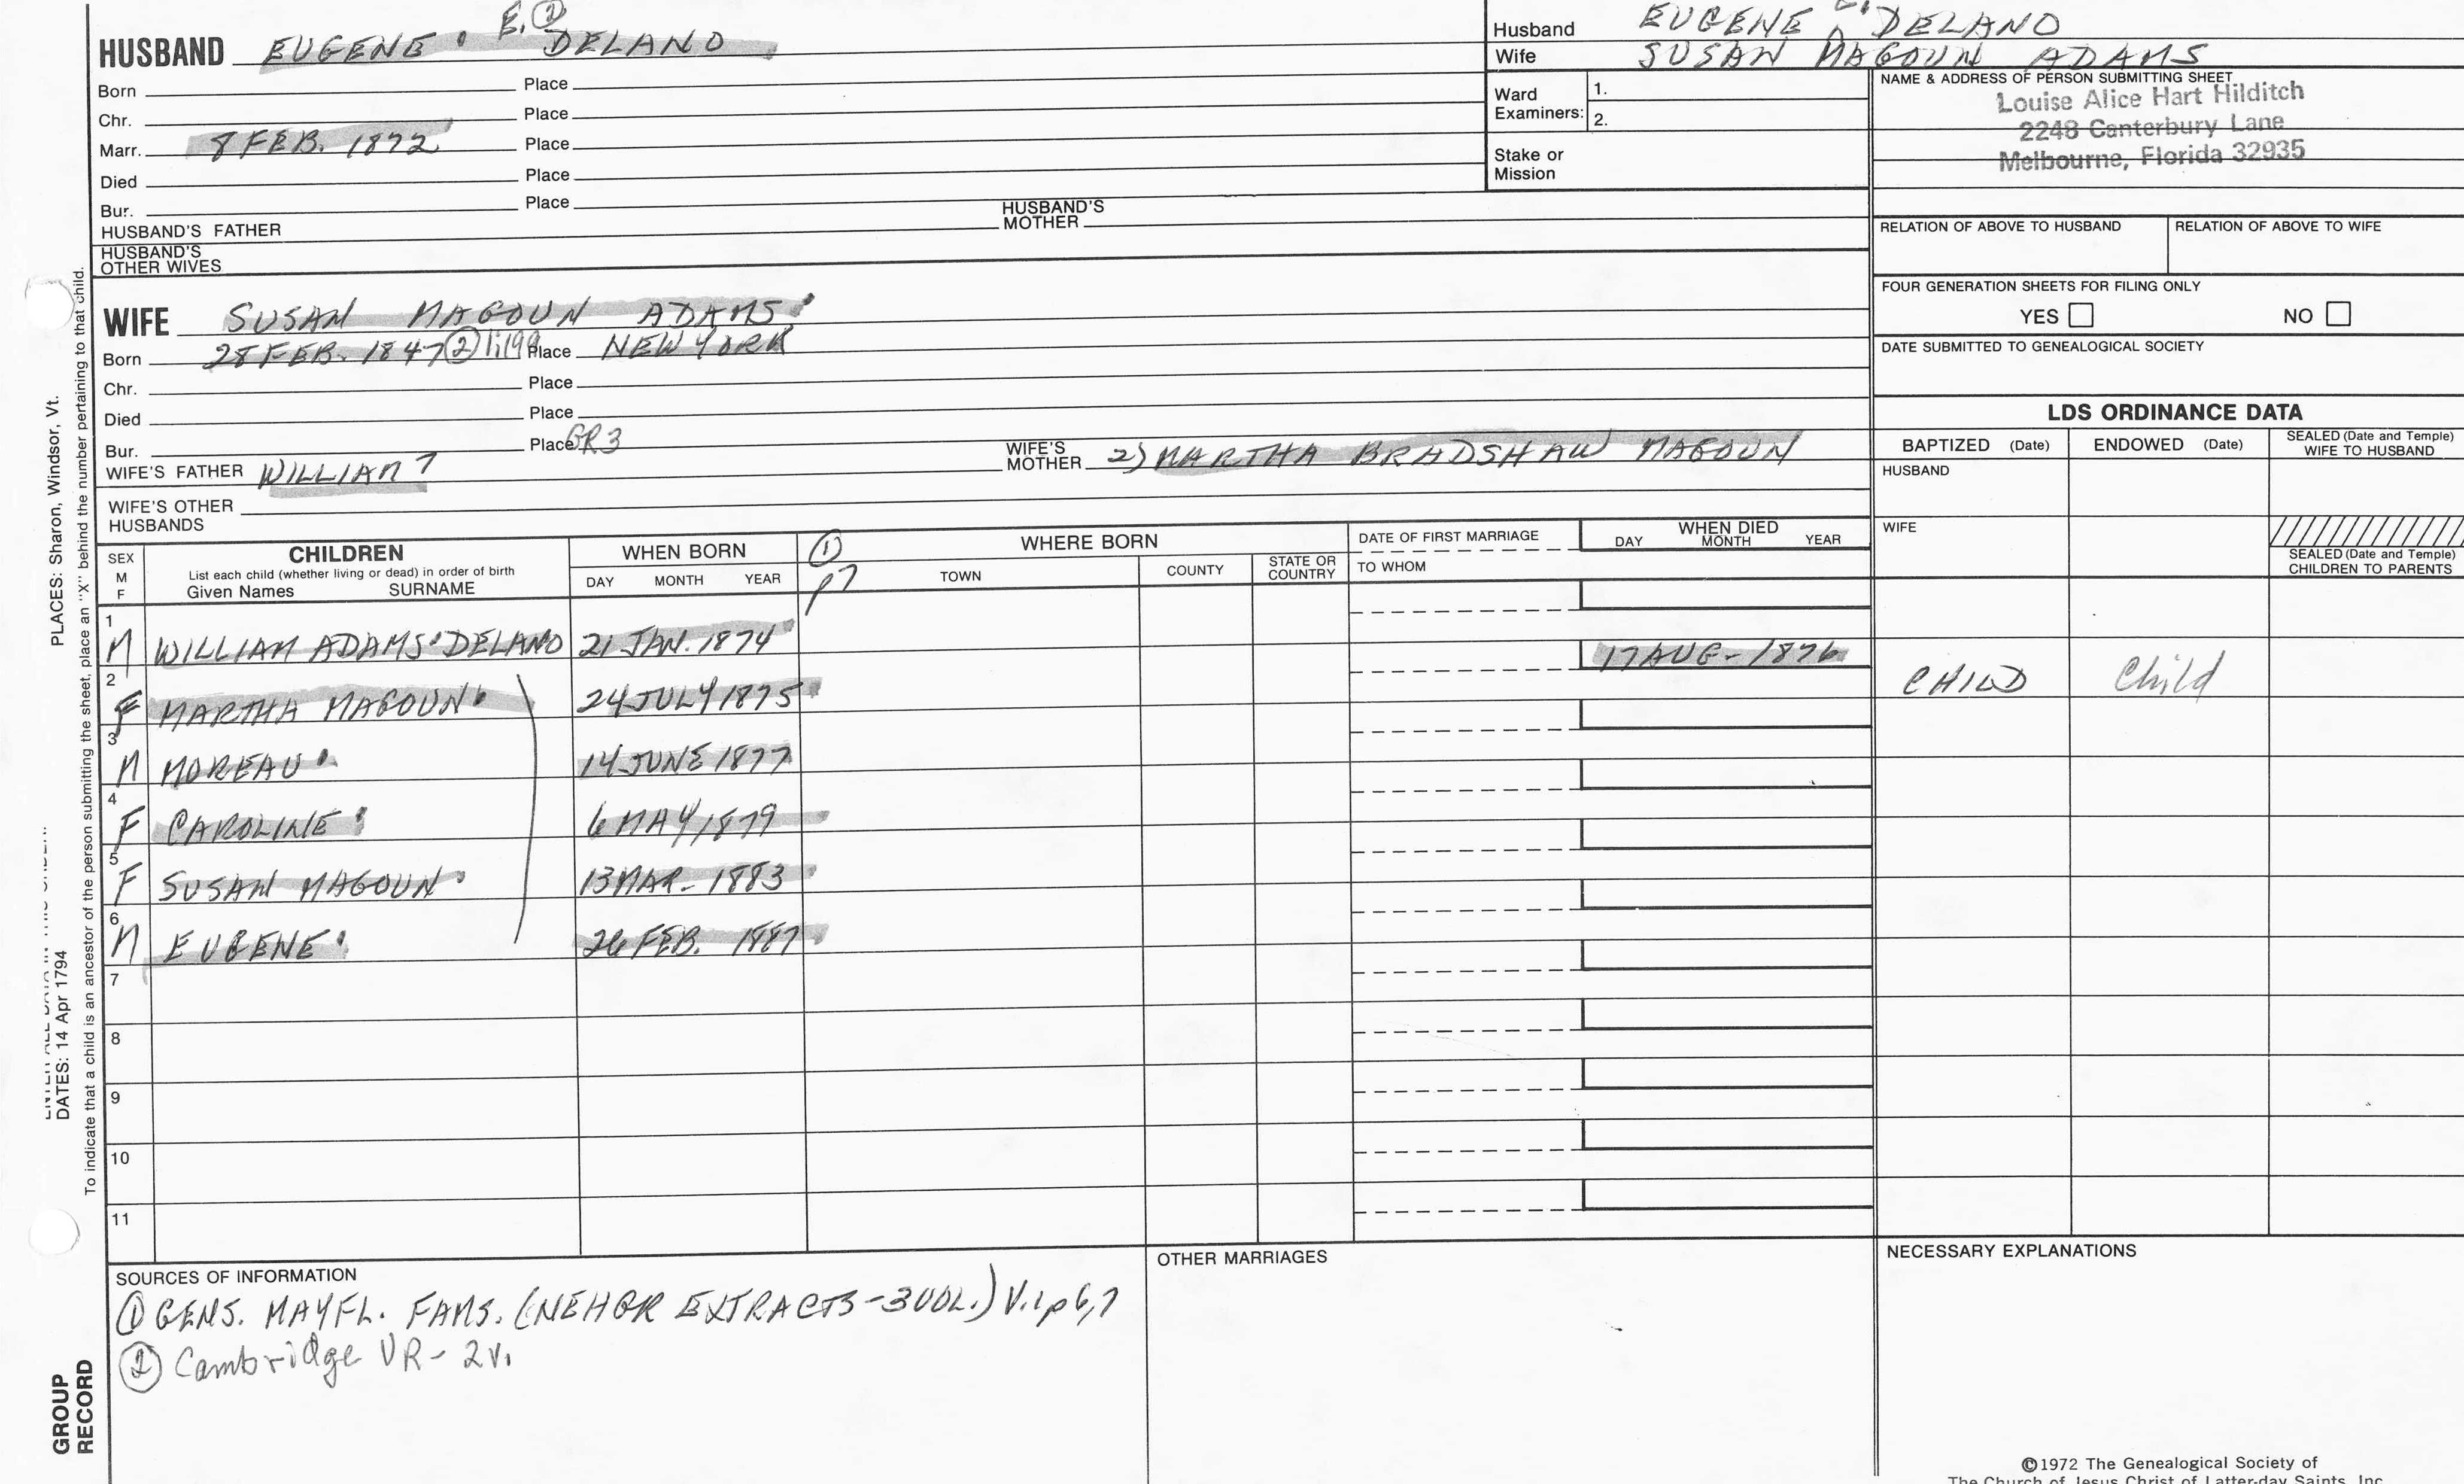 E. ②
HUSBAND EUGENE DELANO
Born Place
Chr. Place
Marr. 8 FEB. 1872 Place
Died Place
Bur. Place
HUSBAND'S FATHER HUSBAND'S MOTHER
HUSBAND'S OTHER WIVES
Husband EUGENE DELANO
Wife SUSAN MAGOUN ADAMS
Ward Examiners: 1.
2.
Stake or Mission
NAME & ADDRESS OF PERSON SUBMITTING SHEET
Louise Alice Hart Hilditch
2248 Canterbury Lane
Melbourne, Florida 32935
RELATION OF ABOVE TO HUSBAND RELATION OF ABOVE TO WIFE
FOUR GENERATION SHEETS FOR FILING ONLY
YES NO
DATE SUBMITTED TO GENEALOGICAL SOCIETY
WIFE SUSAN MAGOUN ADAMS
Born 28 FEB. 1847 ② 1:199 Place NEW YORK
Chr. Place
Died Place
Bur. Place GR3
WIFE'S FATHER WILLIAM 7 WIFE'S MOTHER 2) MARTHA BRADSHAW MAGOUN
WIFE'S OTHER HUSBANDS
LDS ORDINANCE DATA
BAPTIZED (Date) ENDOWED (Date) SEALED (Date and Temple) WIFE TO HUSBAND
HUSBAND
WIFE
SEALED (Date and Temple) CHILDREN TO PARENTS
SEX M F
CHILDREN
List each child (whether living or dead) in order of birth
Given Names SURNAME
WHEN BORN
DAY MONTH YEAR
① p7
WHERE BORN
TOWN COUNTY STATE OR COUNTRY
DATE OF FIRST MARRIAGE
TO WHOM
WHEN DIED
DAY MONTH YEAR
1 M WILLIAM ADAMS DELANO 21 JAN. 1874
17 AUG - 1876
2 F MARTHA MAGOUN 24 JULY 1875 CHILD Child
3 M MOREAU 14 JUNE 1877
4 F CAROLINE 6 MAY 1879
5 F SUSAN MAGOUN 13 MAR - 1883
6 M EUGENE 26 FEB. 1887
7
8
9
10
11
SOURCES OF INFORMATION
① GENS. MAYFL. FAMS. (NEHGR EXTRACTS - 3 VOL.) V.1 p 6,7
② Cambridge VR - 2v.
OTHER MARRIAGES
NECESSARY EXPLANATIONS
©1972 The Genealogical Society of
The Church of Jesus Christ of Latter-day Saints, Inc.
PLACES: Sharon, Windsor, Vt.
DATES: 14 Apr 1794
To indicate that a child is an ancestor of the person submitting the sheet, place an "X" behind the number pertaining to that child.
GROUP
RECORD